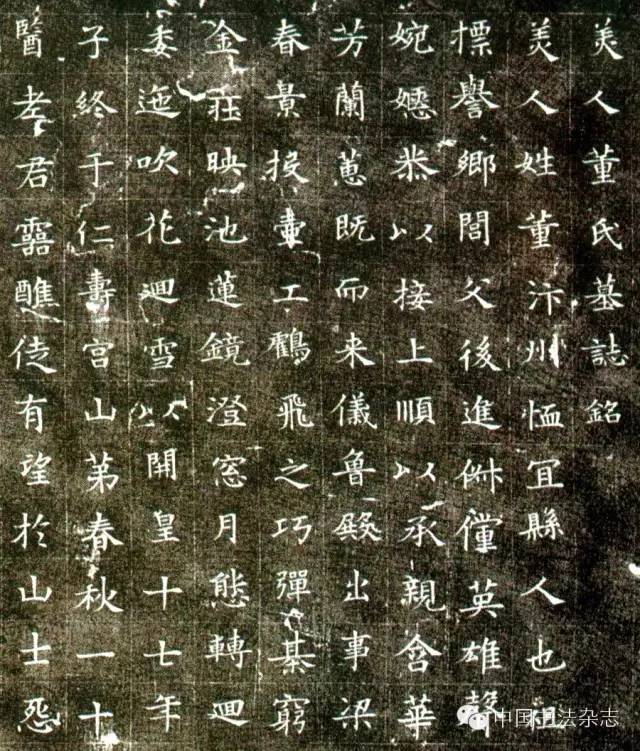 美人董氏墓誌銘
美人姓董汴州恤宜縣人也祖
摽譽鄉閭父後進俶儻英雄聲
婉嬺恭以接上順以承親含華
芳蘭蕙既而来儀魯殿出事梁
春景投壺工鶴飛之巧彈棊窮
金莊映池蓮鏡澄窓月態轉迴
委迤吹花迴雪以開皇十七年
子終于仁壽宮山第春秋一十
醫孝君靈醮徒有望於山士怨
中国书法杂志